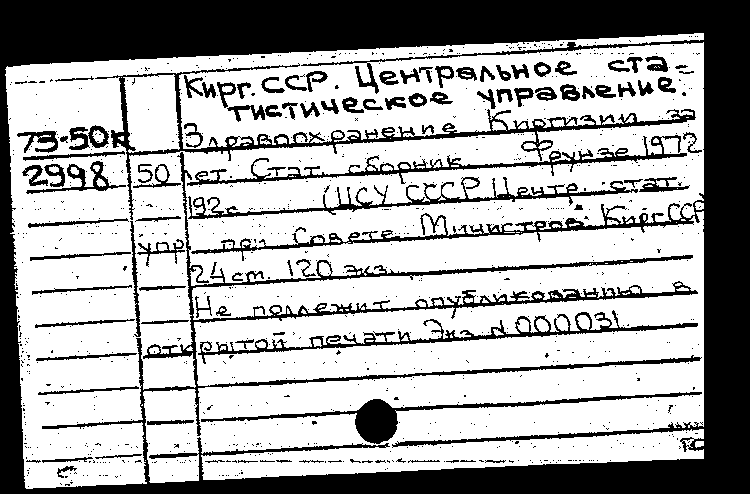 Кирг. ССР. Центральное ста-
тистическое управление.
73-50к Здравоохранение Киргизии за
2998 50 лет. Стат. сборник. Фрунзе, 1972
192с. (ЦСУ СССР Центр. стат.
упр. при Совете Министров Кирг.ССР)
24 см. 120 экз.
Не подлежит опубликованию в
открытой печати Экз. N 000031